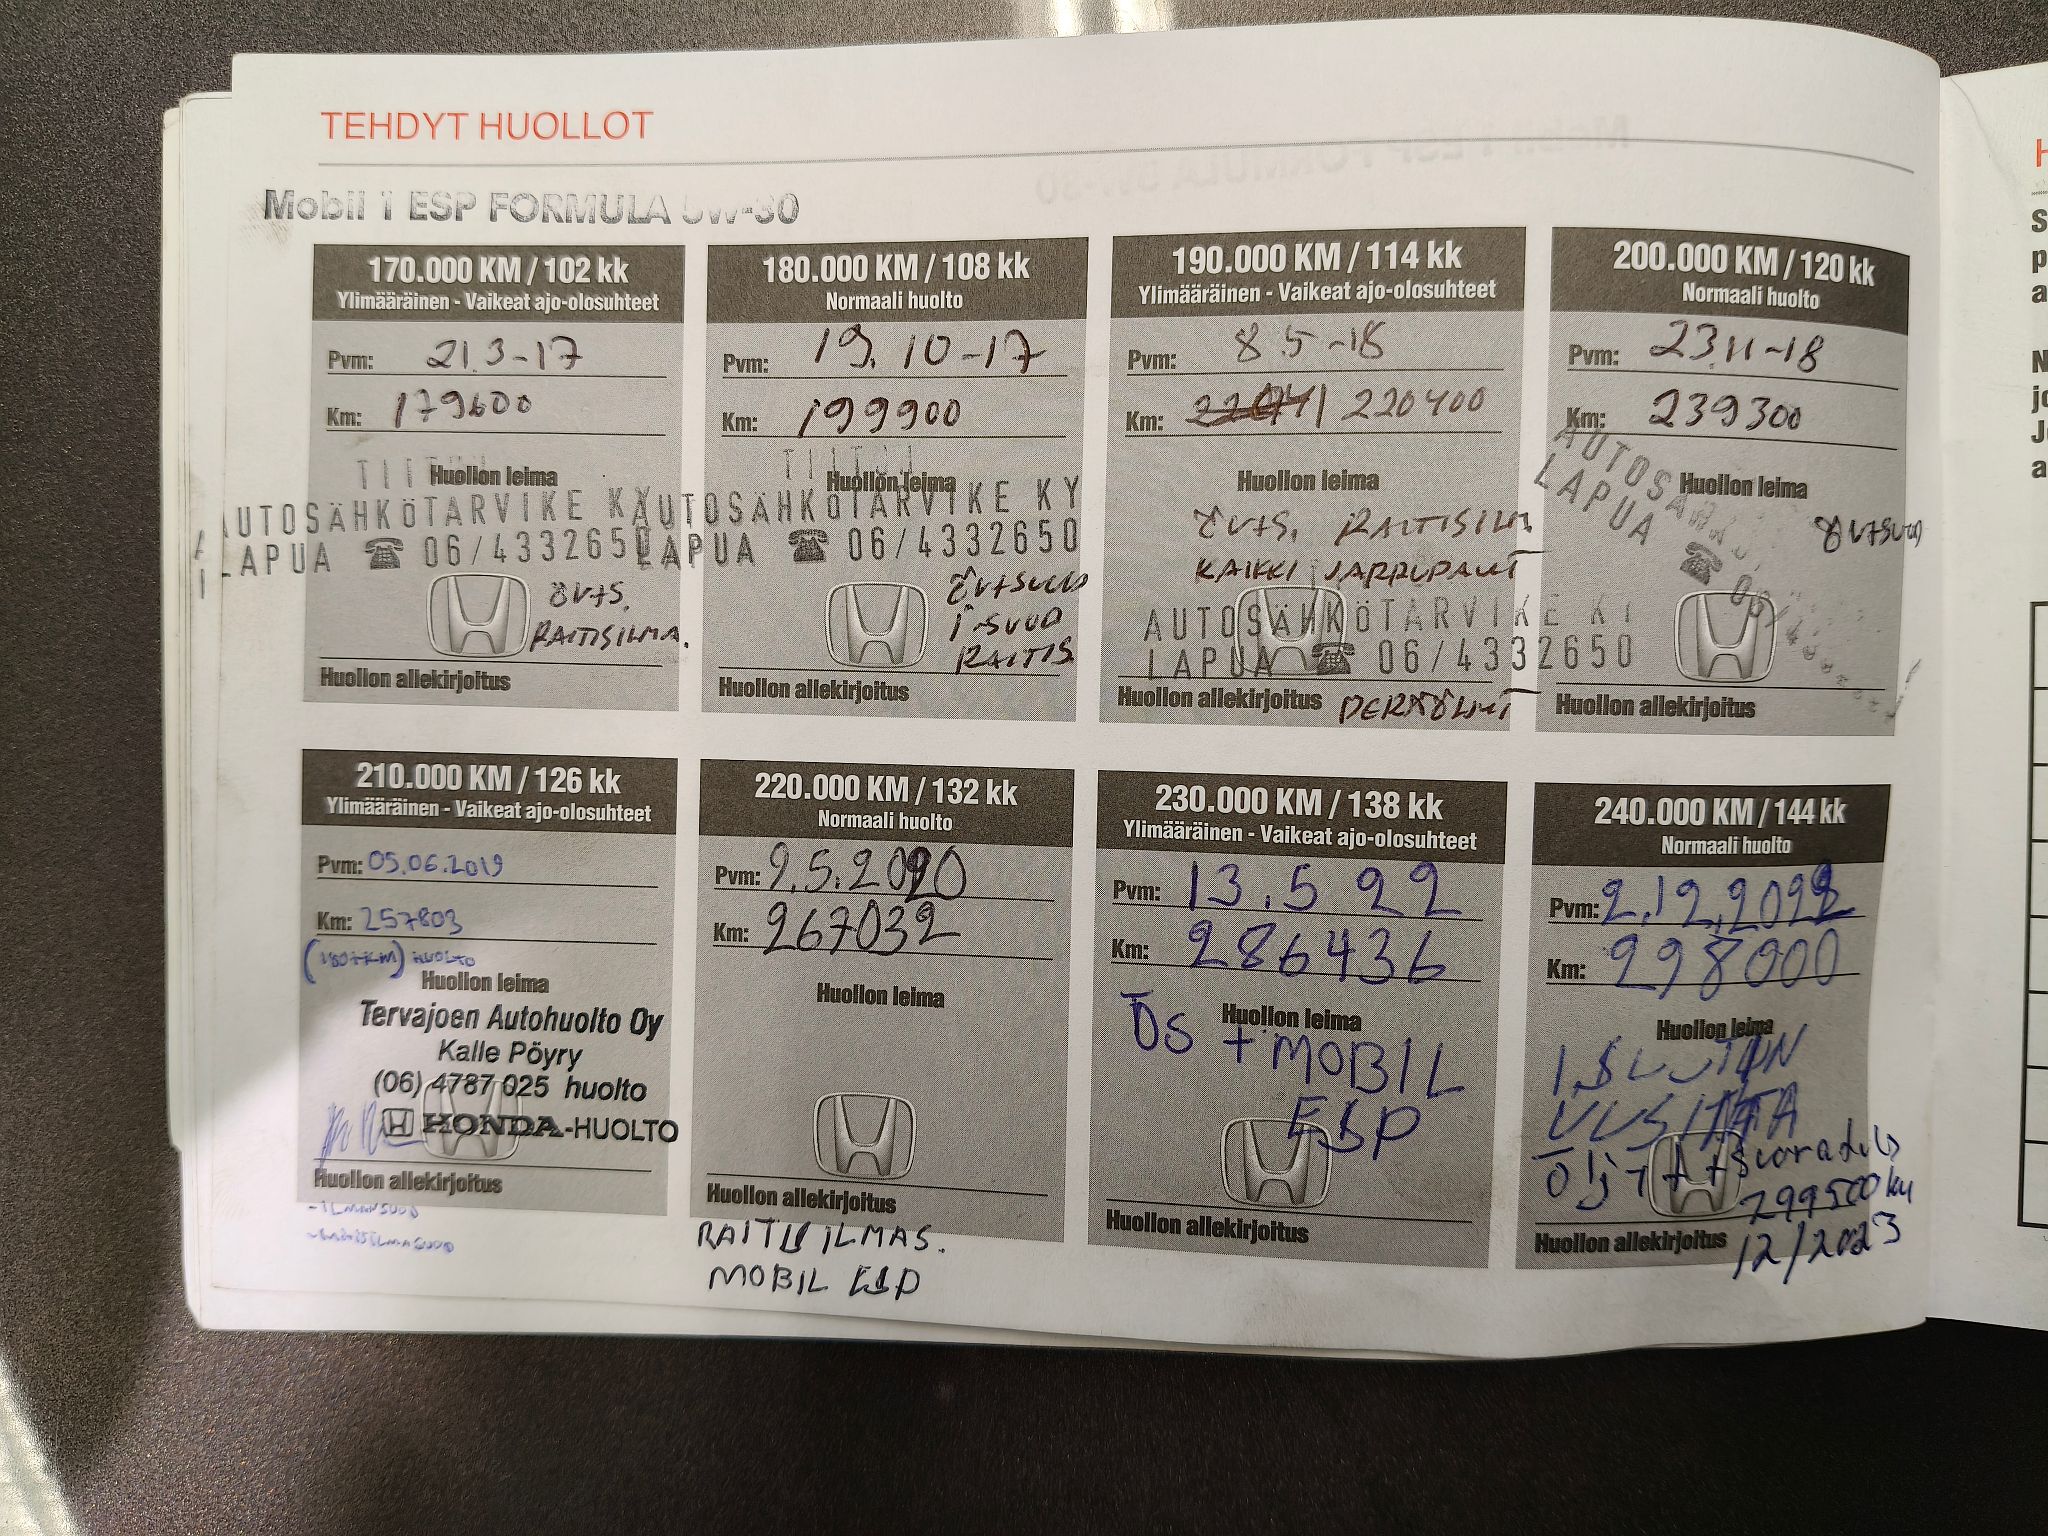 TEHDYT HUOLLOT
Mobil 1 ESP FORMULA 5W-30
170.000 KM / 102 kk
Ylimääräinen - Vaikeat ajo-olosuhteet
Pvm: 21.3-17
Km: 179600
Huollon leima
AUTOSÄHKÖTARVIKE KY
LAPUA ☎ 06/4332650
ÖVTS.
RAITISILMA.
Huollon allekirjoitus
180.000 KM / 108 kk
Normaali huolto
Pvm: 19.10-17
Km: 199900
Huollon leima
AUTOSÄHKÖTARVIKE KY
LAPUA ☎ 06/4332650
ÖVTSUOD
I-SUOD
RAITIS
Huollon allekirjoitus
190.000 KM / 114 kk
Ylimääräinen - Vaikeat ajo-olosuhteet
Pvm: 8.5-18
Km: 220400
Huollon leima
ÖVTS. RAITISILM
KAIKKI JARRUPALAT
AUTOSÄHKÖTARVIKE KY
LAPUA ☎ 06/4332650
Huollon allekirjoitus
PERÄÖLJYT
200.000 KM / 120 kk
Normaali huolto
Pvm: 23.11-18
Km: 239300
Huollon leima
LAPUA ☎
ÖVTSUOD
Huollon allekirjoitus
210.000 KM / 126 kk
Ylimääräinen - Vaikeat ajo-olosuhteet
Pvm: 05.06.2019
Km: 257803
(180tKM) HUOLTO
Huollon leima
Tervajoen Autohuolto Oy
Kalle Pöyry
(06) 4787 025 huolto
HONDA-HUOLTO
Huollon allekirjoitus
-ILMANSUOD
-RAITISILMASUOD
220.000 KM / 132 kk
Normaali huolto
Pvm: 9.5.2020
Km: 267032
Huollon leima
Huollon allekirjoitus
RAITIS ILMAS.
MOBIL ESP
230.000 KM / 138 kk
Ylimääräinen - Vaikeat ajo-olosuhteet
Pvm: 13.5 22
Km: 286436
Huollon leima
ÖS + MOBIL
ESP
Huollon allekirjoitus
240.000 KM / 144 kk
Normaali huolto
Pvm: 2.12.2022
Km: 298000
Huollon leima
öljyT + Suodatus
299500 km
Huollon allekirjoitus
12/2023